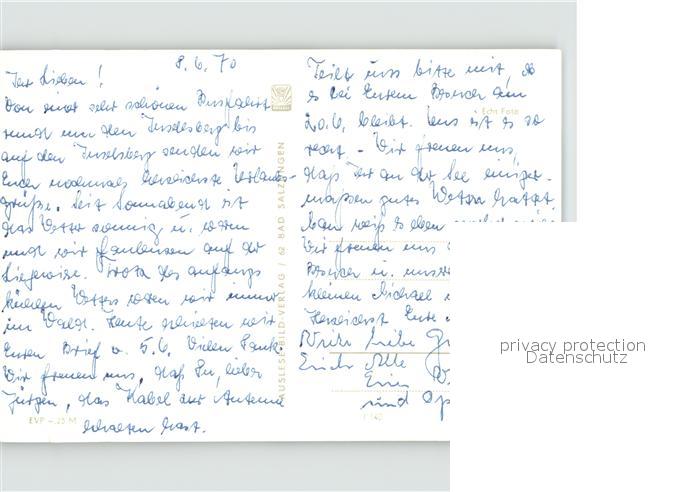 8.6.70
Ihr Lieben!
Von einer sehr schönen Busfahrt
rund um den Inselsberg bis
auf den Inselsberg senden wir
Euch nochmals herzlichste Urlaubs-
grüße. Seit Sonnabend ist
das Wetter sonnig u. warm
und wir faulenzen auf der
Liegewiese. Trotz des anfangs
kühlen Wetters waren wir immer
im Wald. Heute erhielten wir
Euren Brief v. 5.6. Vielen Dank.
Wir freuen uns, daß Du, lieber
Jürgen, das Kabel zur Antenne
erhalten hast.
EVP -.25 M
AUSLESE-BILD-VERLAG / 62 BAD SALZUNGEN
Echt Foto
Teilt uns bitte mit, ob
es bei Eurem Besuch am
20.6. bleibt. Uns ist es so
recht - Wir freuen uns,
daß Ihr an der See einiger-
maßen gutes Wetter hattet.
Man weiß es eben
Wir freuen uns
Besuch u. unsern
kleinen Michael
Herzlichst Eure
Liebe
Erich Alle
und Op
privacy protection
Datenschutz